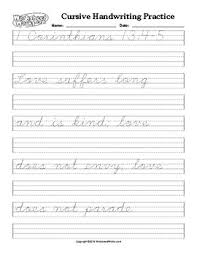 Cursive Handwriting Practice
Name: Date:
1 Corinthians 13:4-5
Love suffers long
and is kind; love
does not envy; love
does not parade